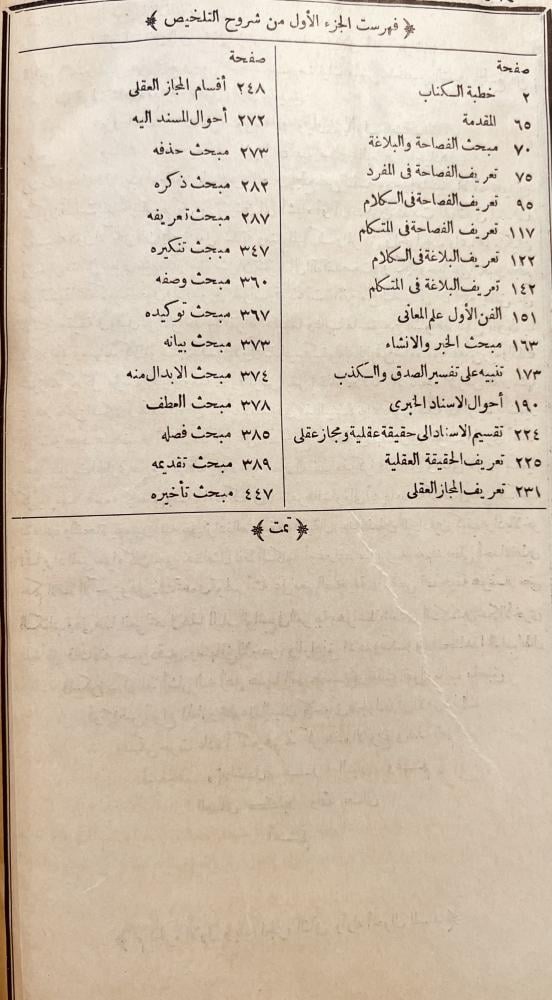 ﴿ فهرست الجزء الأول من شروح التلخيص ﴾
صفحة
٢ خطبة الكتاب
٦٥ المقدمة
٧٠ مبحث الفصاحة والبلاغة
٧٥ تعريف الفصاحة فى المفرد
٩٥ تعريف الفصاحة فى الكلام
١١٧ تعريف الفصاحة فى المتكلم
١٢٢ تعريف البلاغة فى الكلام
١٤٢ تعريف البلاغة فى المتكلم
١٥١ الفن الأول علم المعانى
١٦٣ مبحث الخبر والانشاء
١٧٣ تنبيه على تفسير الصدق والكذب
١٩٠ أحوال الاسناد الخبرى
٢٢٤ تقسيم الاسناد الى حقيقة عقلية ومجاز عقلى
٢٢٥ تعريف الحقيقة العقلية
٢٣١ تعريف المجاز العقلى
صفحة
٢٤٨ أقسام المجاز العقلى
٢٧٢ أحوال المسند اليه
٢٧٣ مبحث حذفه
٢٨٢ مبحث ذكره
٢٨٧ مبحث تعريفه
٣٤٧ مبحث تنكيره
٣٦٠ مبحث وصفه
٣٦٧ مبحث توكيده
٣٧٣ مبحث بيانه
٣٧٤ مبحث الابدال منه
٣٧٨ مبحث العطف
٣٨٥ مبحث فصله
٣٨٩ مبحث تقديمه
٤٤٧ مبحث تأخيره
﴿ تمت ﴾